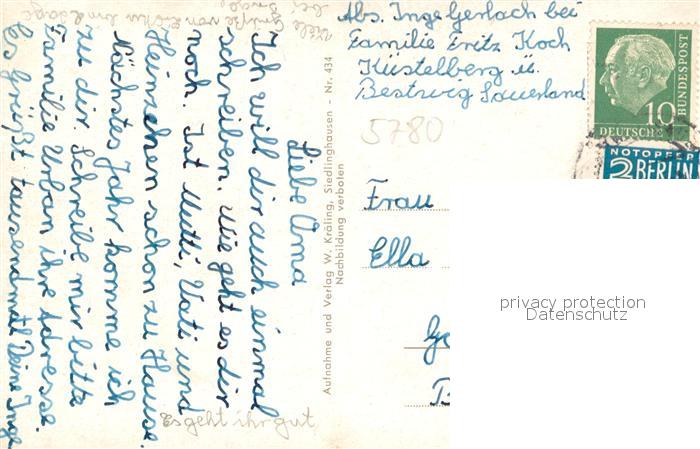 Abs. Inge Gerlach bei
Familie Fritz Koch
Küstelberg ü.
Bestwig Sauerland
5780
10
DEUTSCHE
BUNDESPOST
NOTOPFER
2 BERLIN
Frau
Ella
privacy protection
Datenschutz
Aufnahme und Verlag W. Kräling, Siedlinghausen - Nr. 434
Nachbildung verboten
Viele Grüße von
Liebe Oma
Ich will dir auch einmal
schreiben. Wie geht es dir
noch. Ist Mutti, Vati und
Heinzchen schon zu Hause.
Nächstes Jahr komme ich
zu dir. Schreibe mir bitte
Familie Urban ihre Adresse.
Es grüßt tausendmal Deine Inge
Es geht ihr gut